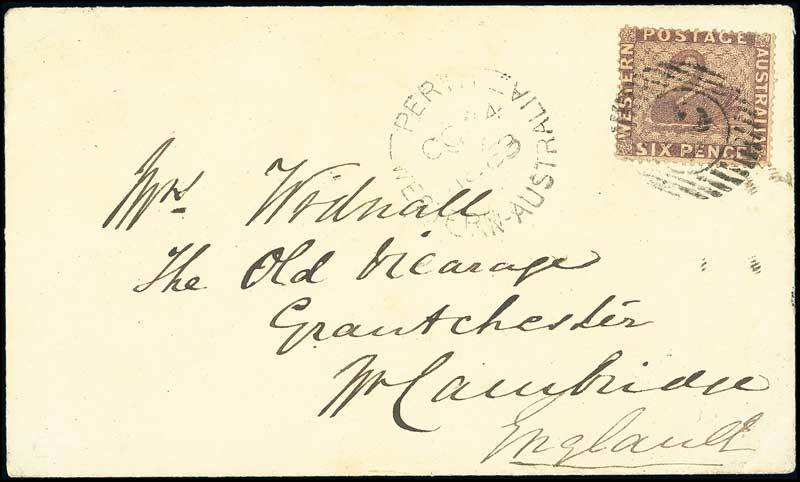 WESTERN
POSTAGE
AUSTRALIA
SIX PENCE
PERTH
WESTERN-AUSTRALIA
Mrs Widnall
The Old Vicarage
Grantchester
Nr Cambridge
England